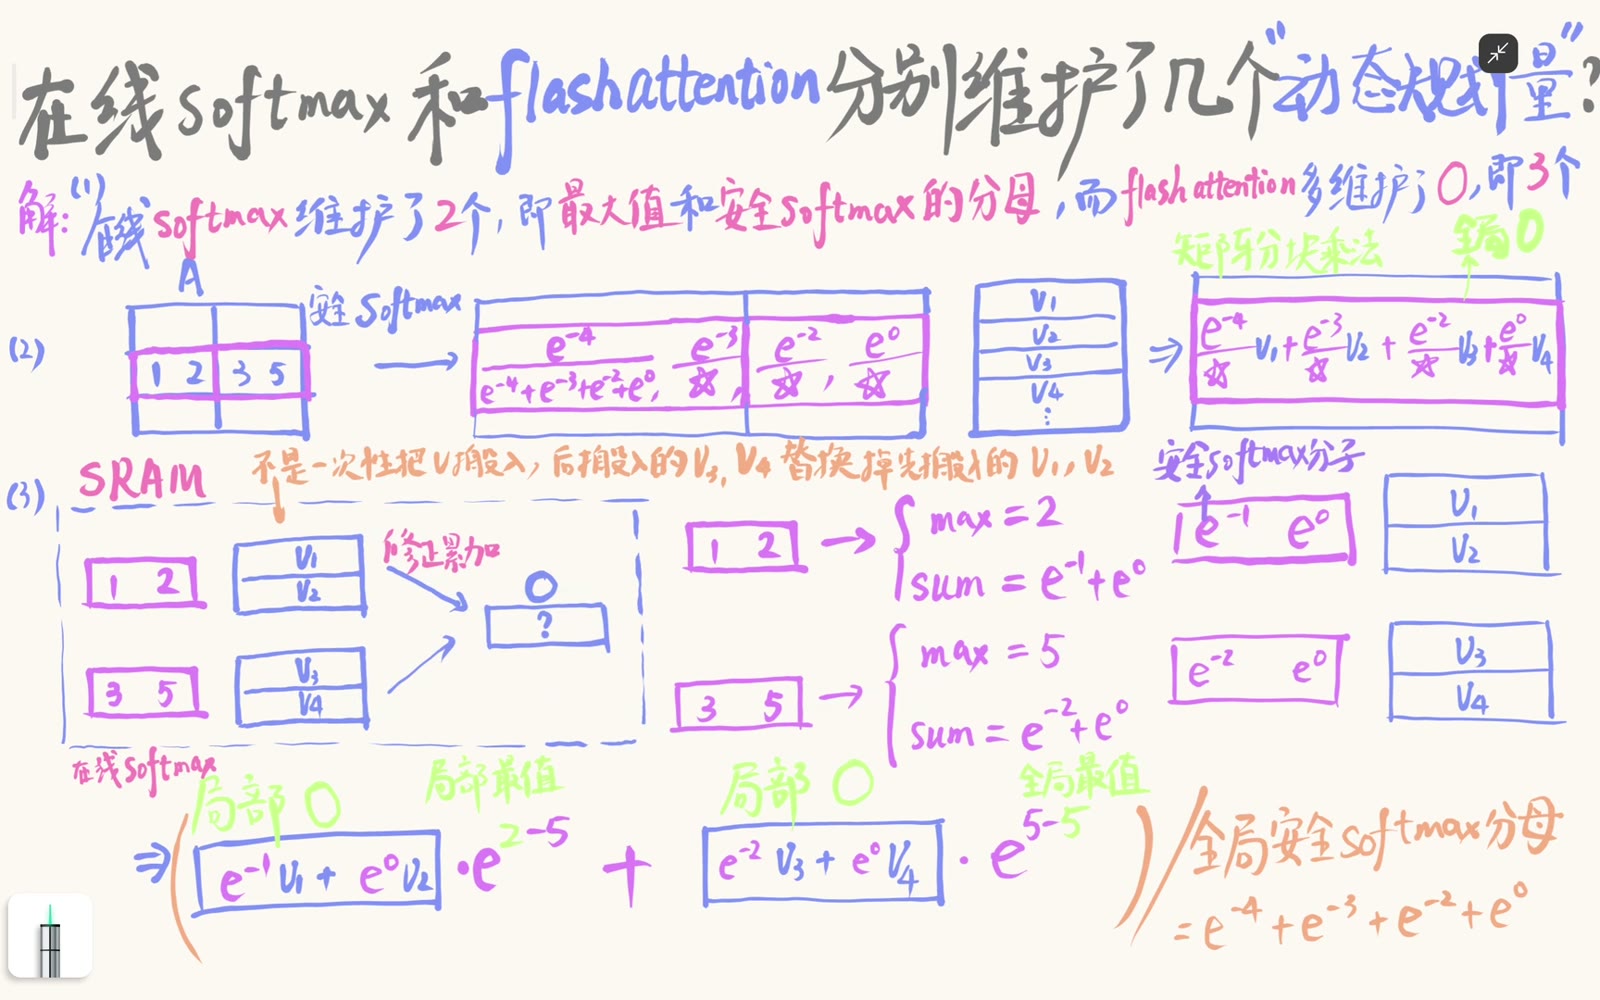 在线softmax 和flashattention分别维护了几个"动态规划量"?
解:(1)在线softmax维护了2个,即最大值和安全softmax的分母,而flash attention多维护了O,即3个
A
安全 softmax
矩阵分块乘法
全局O
(2)
1 2 3 5
e^-4/(e^-4+e^-3+e^-2+e^0), e^-3/☆, e^-2/☆, e^0/☆
V1
V2
V3
V4
⋮
⇒ e^-4/☆ V1 + e^-3/☆ V2 + e^-2/☆ V3 + e^0/☆ V4
(3)
SRAM
不是一次性把V搬入,后搬入的V3, V4 替换掉先搬入的 V1, V2
1 2
V1
V2
修正累加
O
?
3 5
V3
V4
在线softmax
1 2 → { max = 2
sum = e^-1 + e^0
安全softmax分子
e^-1 e^0
V1
V2
3 5 → { max = 5
sum = e^-2 + e^0
e^-2 e^0
V3
V4
局部 O
局部最值
局部 O
全局最值
⇒ ( e^-1 V1 + e^0 V2 · e^2-5 + e^-2 V3 + e^0 V4 · e^5-5 ) / 全局安全softmax分母
= e^-4 + e^-3 + e^-2 + e^0